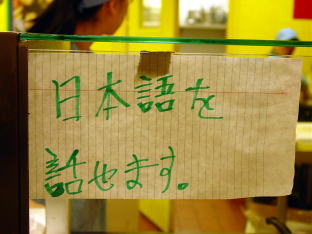 日本語を
話せます。